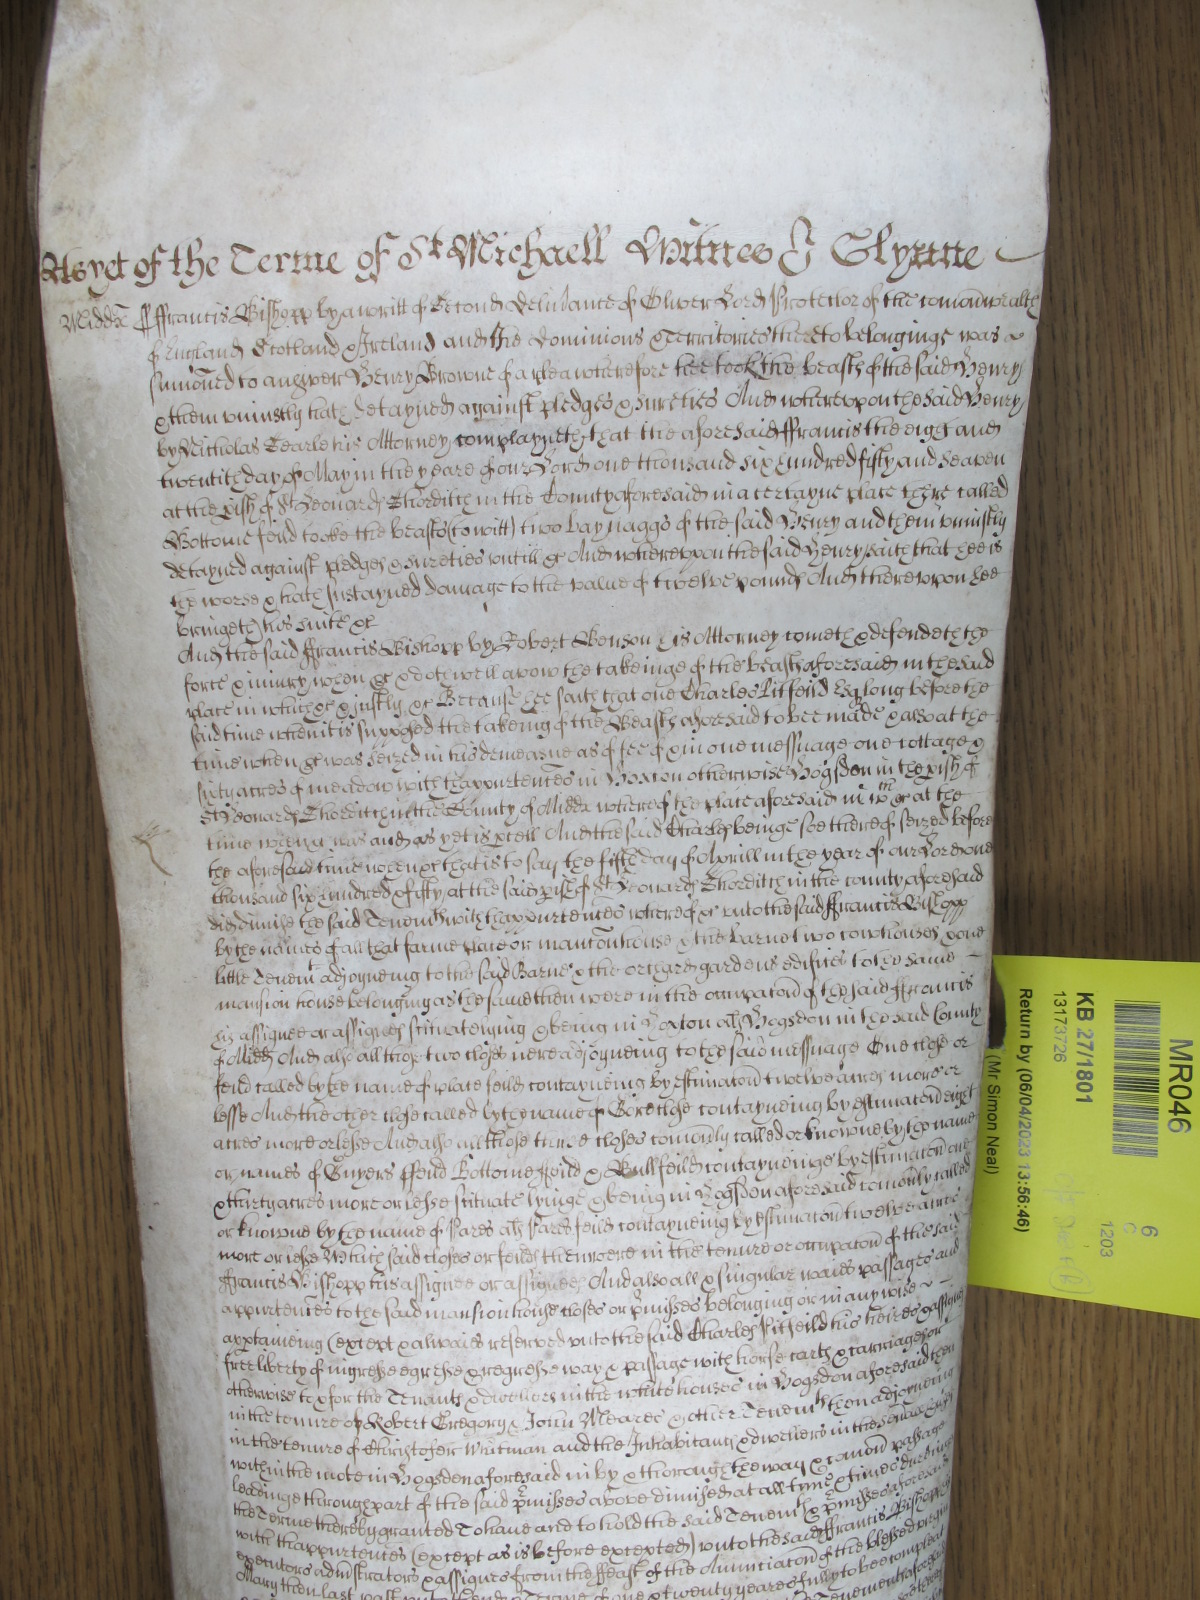 As yet of the Terme of St Michaell Witnes J Glynne
Midd ffrancis Bishopp by a writt of second deliverance of Oliver Lord Protector of the comonwealth
of England Scotland & Ireland and the dominions & Territories thereto belonginge was
sumoned to answer Henry Browne of a plea wherefore hee took the beasts of the said Henry
& them uniustly hath detayned against pledges & sureties And whereupon the said Henry
by Nicholas Tearle his Attorney complayneth that the aforesaid ffrancis the eight and
twentith day of May in the yeare of our Lord one thousand six hundred fifty and seaven
at the pish of St Leonards Shorditch in the County aforesaid in a certayne place there called
Bottome feild tooke the beasts (to witt) two bay naggs of the said Henry and them uniustly
detayned against pledges & sureties untill &c And whereupon the said Henry saith that hee is
the worse & hath sustayned damage to the value of twelve pounds And thereupon hee
bringeth his suite &c
And the said ffrancis Bishopp by Robert Benson his Attorney cometh & defendeth the
force & iniury when &c & doth well avow the takeinge of the beasts aforesaid in the said
place in which &c & iustly &c Because hee saith that one Charles Pitfeild Esq long before the
said time when it is supposed the takeing of the Beasts aforesaid to bee made & also at the
time when &c was seized in his demeasne as of fee of & in one messuage one cottage &
sixty acres of meadow with thappurtences in Hoxton otherwise Hogsden in the pish of
St Leonards Shorditch in the County of Midd whereof the place aforesaid in wch &c at the
time when &c was and as yet is pcell And the said Charles beinge soe thereof seized before
the aforesaid time when &c that is to say the fifth day of Aprill in the year of our Lord one
thousand six hundred & fifty at the said pish of St Leonards Shorditch in the county aforesaid
did dimise the said Tenemts with thappurtences whereof &c unto the said ffrancis Bishopp
by the names of all that farme place or mansion house & the barne two cowhouses & one
little Tenemt adjoyneing to the said Barne & the orchard gardens edifices to the same
mansion house belonging as the same then were in the occupacon of the said ffrancis
his assignee or assignes scituate lying & being in Hoxton als Hogsdon in the said County
of Midd And also all those two closes nere adjoyneing to the said messuage One close or
feild called by the name of place feild contayneing by estimacon twelve acres more or
lesse And the other close called by the name of Gore close contayneing by estimacon eight
acres more or lesse And also all those three closes comonly called or knowne by the name
or names of Guyers ffeild Bottome ffeild & Bull feild contayneinge by estimacon one
& thirty acres more or lesse scituate lyinge & being in Hogsdon aforesaid comonly called
or knowne by the name of Pares als Pares feild contayneing by estimacon twelve acres
more or lesse Which said closes or feilds then were in the tenure or occupacon of the said
ffrancis Bishopp his assignee or assignes And also all & singular waies passages and
appurtences to the said mansion house closes or pmisses belonging or in any wise
apptaineing (except & alwaies reserved unto the said Charles Pitfeild his heires & assignes
free liberty of ingresse egresse & regresse way & passage with horse carts & carriages or
otherwise to & for the Tenants & dwellers in the white houses in Hogsdon aforesaid then
in the tenure of Robert Gregory & John Meares & other Tenemts then adjoyneing
in the tenure of Christofer Whitman and the Inhabitants & dwellers in the
within the mote in Hogsden aforesaid in by & thorough the way & comon passage
leadinge through part of the said pmisses above dimised at all time & times dureinge
the Terme thereby granted To have and to hold the said Tenemts & pmisses aforesaid
with thappurtences (except as is before excepted) unto the said ffrancis Bishopp his
executors admistrators & assignes from the ffeast of the Anunciacon of the blessed virgin
Mary then last past unto the end & Terme of one & twenty yeares fully to bee compleat
MR046
KB 27/1801
13173726
Return by (06/04/2023 13:56:46)
(Mr Simon Neal)
6
C
1203